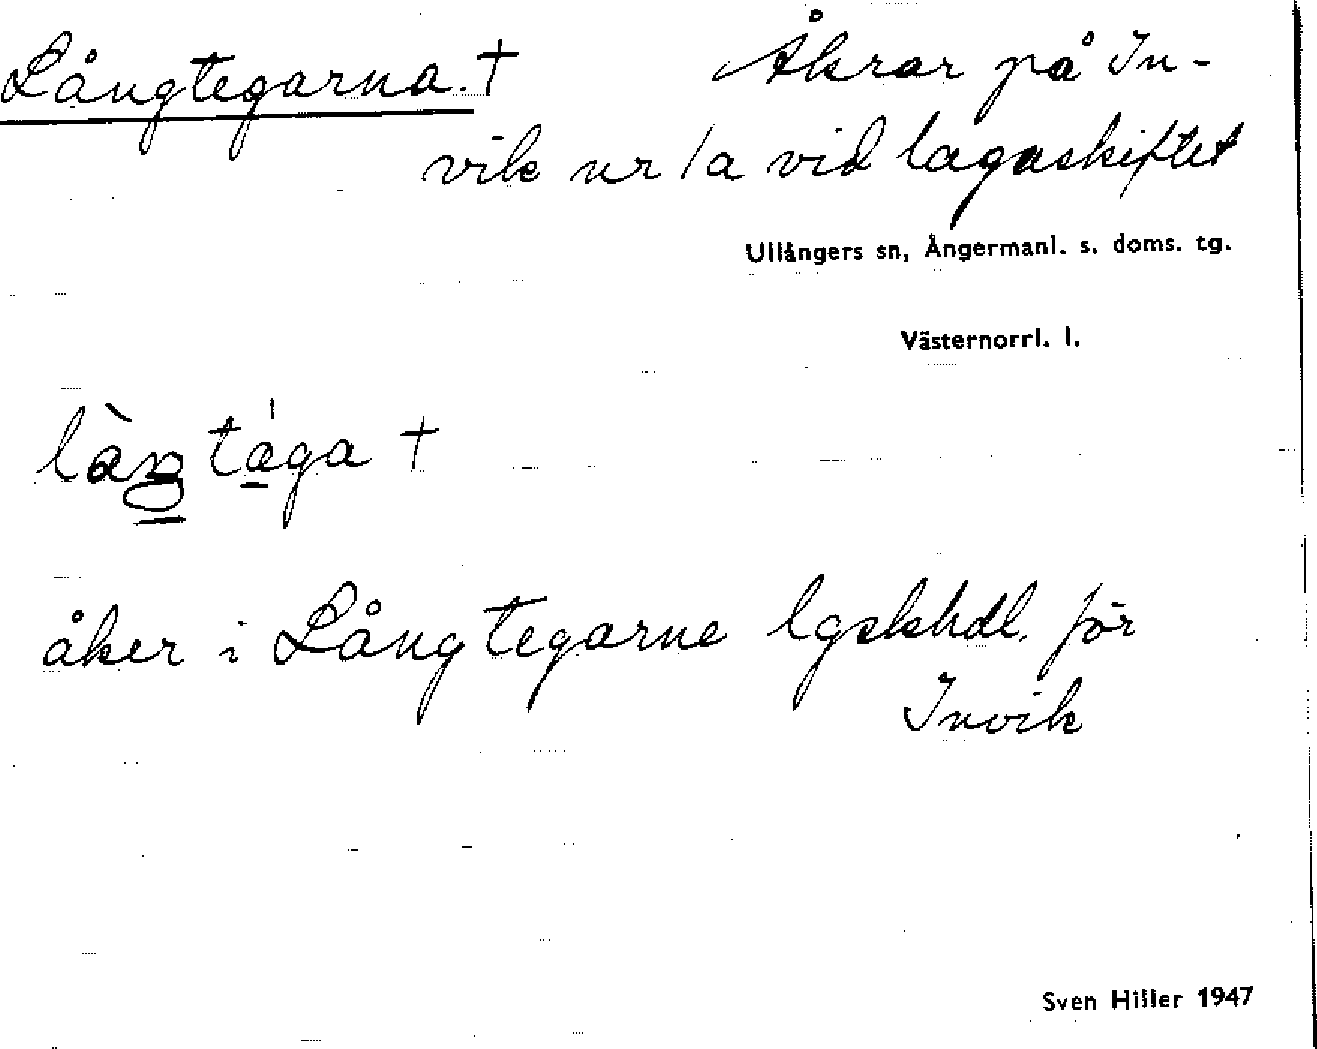 Långtegarna. † Åkrar på In-
vik nr 1a vid lagaskiftet
Ullångers sn, Ångermanl. s. doms. tg.
Västernorrl. l.
làŋ tága †
åker i Långtegarne lgskhdl. för
Invik
Sven Hiller 1947